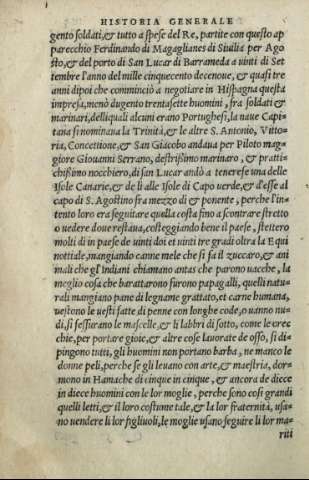 HISTORIA GENERALE
gento soldati, & tutto a spese del Re, partite con questo ap
parecchio Ferdinando di Magaglianes di Siuilia per Ago
sto, & del porto di San Lucar di Barrameda a uinti di Set
tembre l'anno del mille cinquecento decenoue, & quasi tre
anni dipoi che comminciò a negotiare in Hispagna questa
impresa, menò dugento trentasette huomini, fra soldati &
marinari, delliquali alcuni erano Portughesi, la naue Capi-
tana si nominaua la Trinità, & le altre S. Antonio, Vitto-
ria, Concettione, & San Giacobo andaua per Piloto mag-
giore Giouanni Serrano, destrissimo marinaro, & pratti-
chissimo nocchiero, di san Lucar andò a tenerese una delle
Isole Canarie, & de li alle Isole di Capo uerde, & d'esse al
capo di S. Agostino fra mezzo dì & ponente, perche l'in-
tento loro era seguitare quella costa fino a scontrare stretto
o uedere doue restaua, costeggiando bene il paese, stettero
molti dì in paese de uinti doi et uinti tre gradi oltra la Equi
nottiale, mangiando canne mele che si fa il zuccaro, & ani
mali che gl'Indiani chiamano antas che parono uacche, la
meglio cosa che barattarono furono papagalli, quelli natu-
rali mangiano pane di legname grattato, et carne humana,
uestono le uesti fatte di penne con longhe code, o uanno nu-
di, si fessurano le mascelle, & li labbri di sotto, come le orec
chie, per portare gioie, & altre cose lauorate de osso, si di-
pingono tutti, gli huomini non portano barba, ne manco le
donne peli, perche se gli leuano con arte, & maestria, dor-
mono in Hamache di cinque in cinque, & ancora de diece
in diece huomini con le lor moglie, perche sono cosi grandi
quelli letti, & il loro costume tale, & la lor fraternità, usa-
no uendere li lor figliuoli, le moglie usano seguire li lor ma-
riti